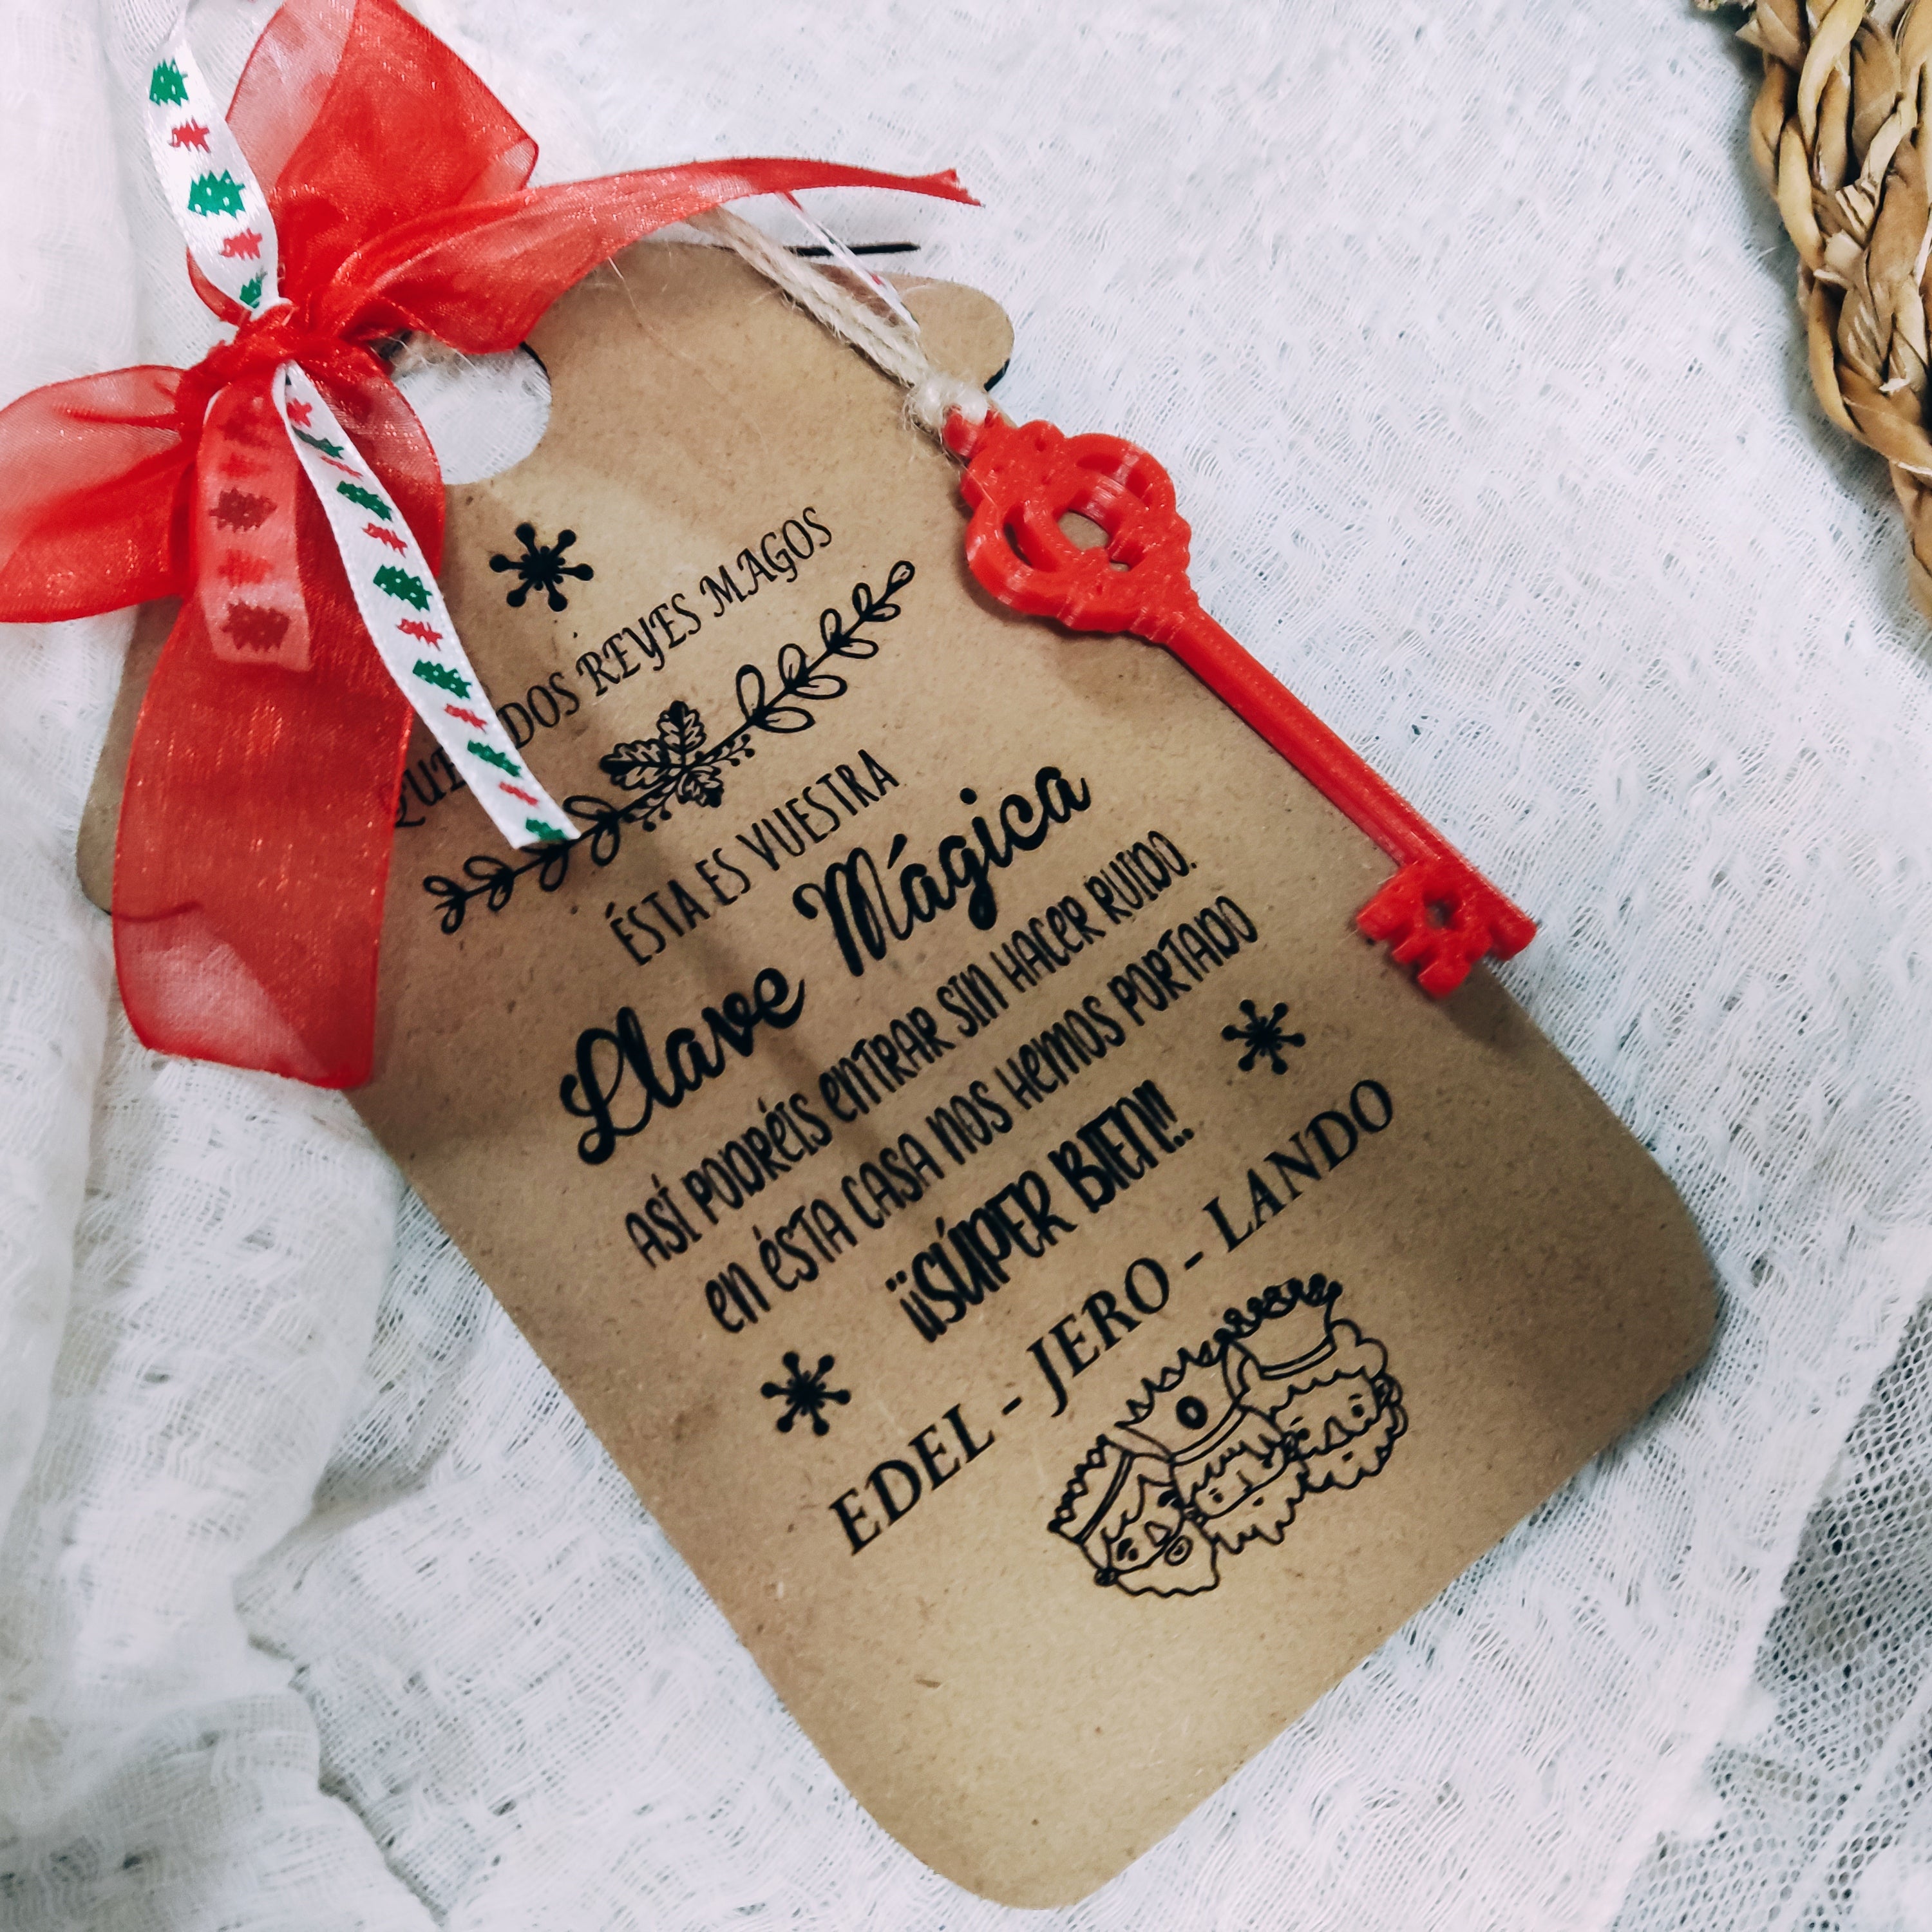 QUERIDOS REYES MAGOS
ÉSTA ES VUESTRA
Llave Mágica
ASÍ PODRÉIS ENTRAR SIN HACER RUIDO.
EN ÉSTA CASA NOS HEMOS PORTADO
¡¡SÚPER BIEN!!.
EDEL - JERO - LANDO